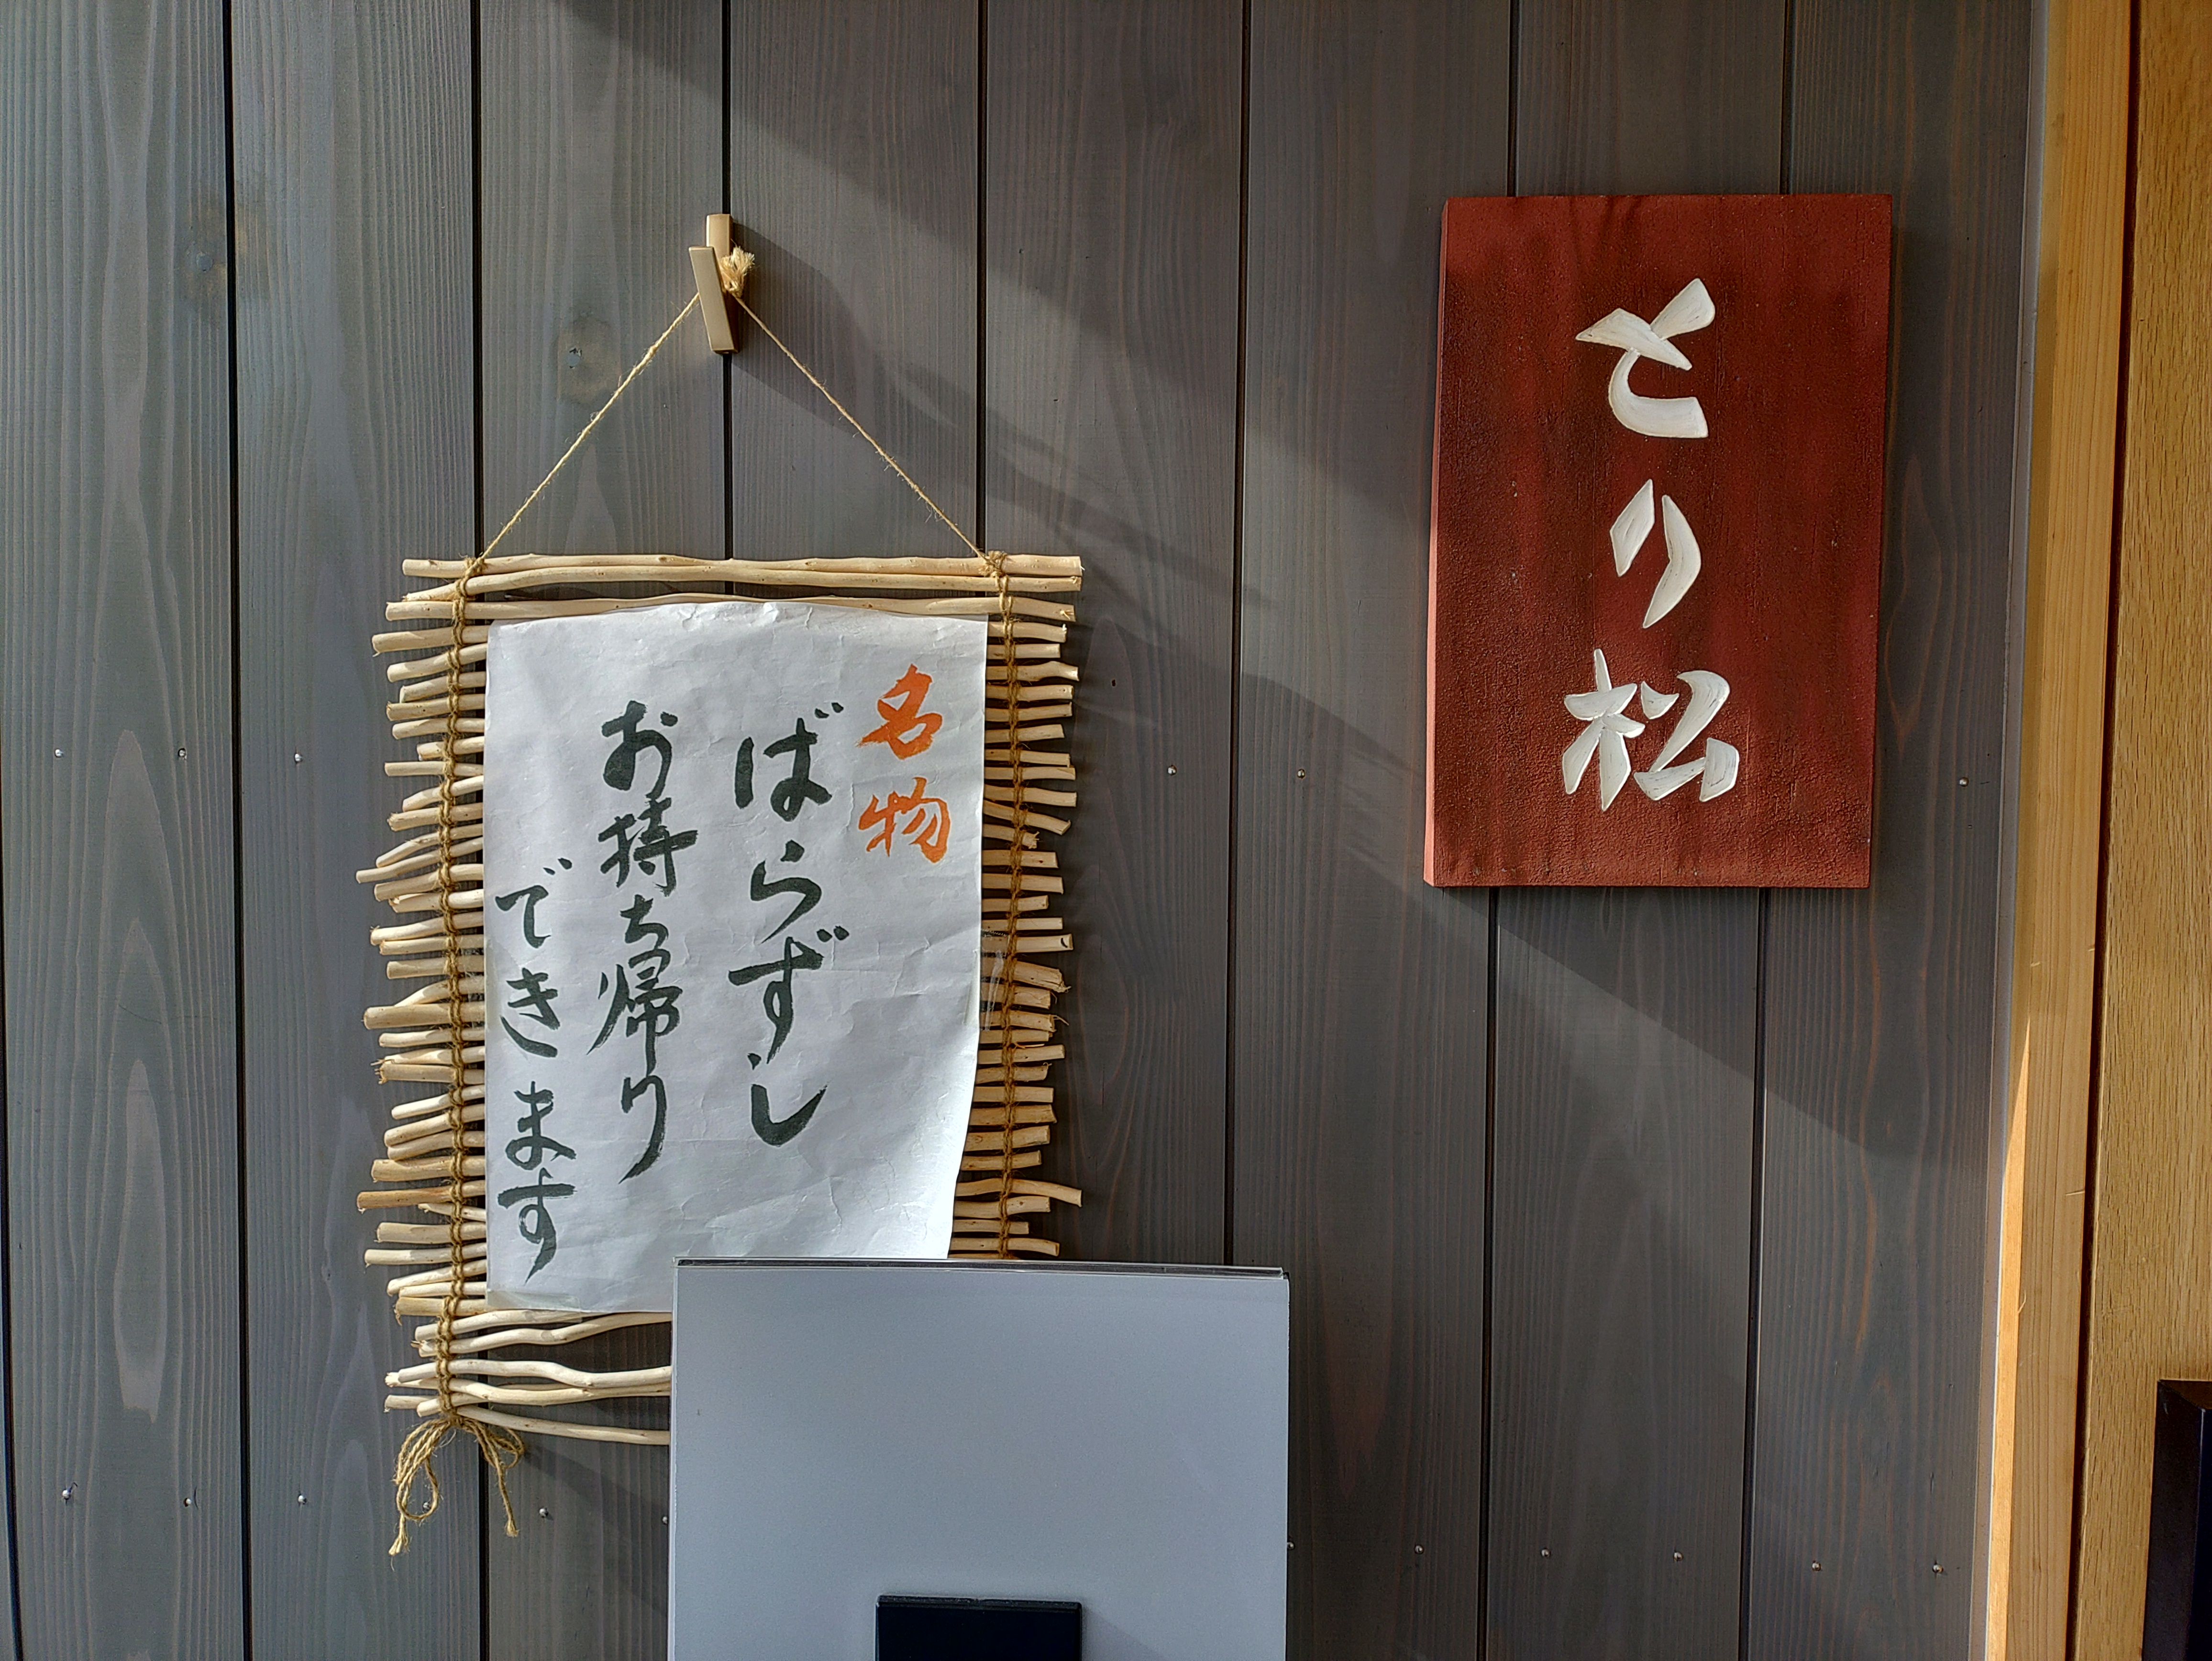 とり松
名物
ばらずし
お持ち帰り
できます